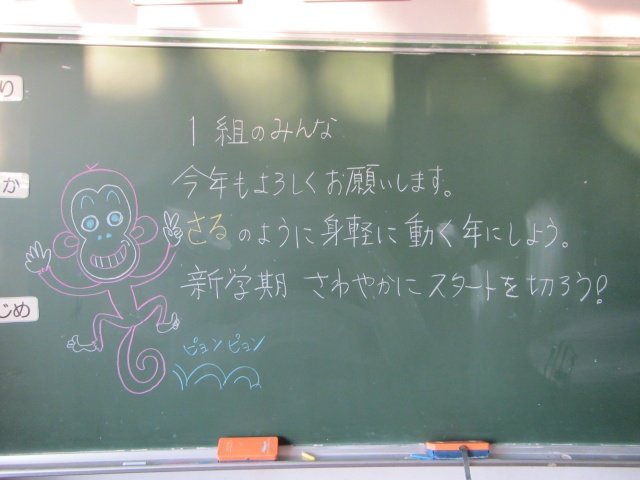 1組のみんな
今年もよろしくお願いします。
さるのように身軽に動く年にしよう。
新学期 さわやかにスタートを切ろう!
ピョンピョン
り
か
じめ